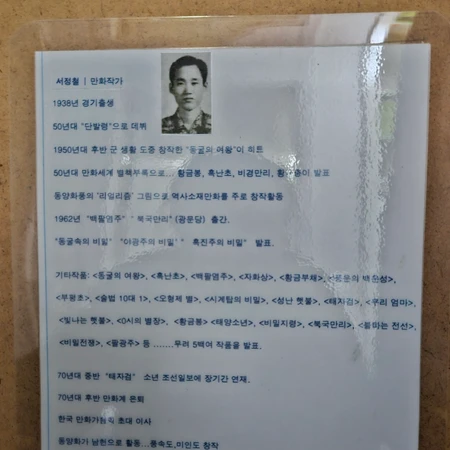 서정철 | 만화작가
1938년 경기출생
50년대 "단발령"으로 데뷔
1950년대 후반 군 생활 도중 창작한 "동굴의 여왕"이 히트
50년대 만화세계 별책부록으로... 황금봉, 흑난초, 비경만리, 발표
동양화풍의 "리얼리즘" 그림으로 역사소재만화를 주로 창작활동
1962년 "백팔염주" "북국만리" (광문당) 출간.
"동굴속의 비밀" "야광주의 비밀" " 흑진주의 비밀" 발표.
기타작품: <동굴의 여왕>, <흑난초>, <백팔염주>, <자화상>, <황금부채>,
<무왕초>, <술법 10대 1>, <오형제 별>, <시계탑의 비밀>, <성난 횃불>, <태자검>, <우리 엄마>,
<빛나는 횃불>, <0시의 별장>, <황금봉> <태양소년>, <비밀지령>, <북국만리>, <불타는 전선>,
<비밀전쟁>, <팔광주> 등 .......무려 5백여 작품을 발표.
70년대 중반 "태자검" 소년 조선일보에 장기간 연재.
70년대 후반 만화계 은퇴
한국 만화가협회 초대 이사
동양화가 남헌으로 활동...풍속도,미인도 창작